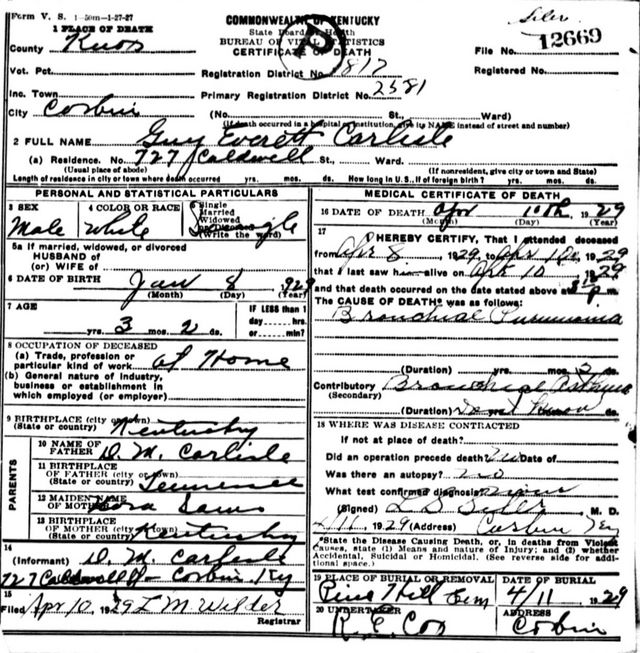 Form V. S. 1-50m-1-27-27
COMMONWEALTH OF KENTUCKY
Siler
1 PLACE OF DEATH
State Board of Health
BUREAU OF VITAL STATISTICS
CERTIFICATE OF DEATH
County Knox
File No. 12669
Vot. Pct.
Registration District No. 817
Registered No.
Inc. Town
Primary Registration District No. 2381
City Corbin
(No. St., Ward)
(If death occurred in a hospital or institution, give its NAME instead of street and number)
2 FULL NAME Guy Everett Carlisle
(a) Residence. No. 727 Caldwell St., Ward.
(Usual place of abode) (If nonresident, give city or town and State)
Length of residence in city or town where death occurred yrs. mos. ds. How long in U. S., if of foreign birth? yrs. mos. ds.
PERSONAL AND STATISTICAL PARTICULARS
3 SEX Male
4 COLOR OR RACE White
5 Single Married Widowed or Divorced (Write the word) Single
5a If married, widowed, or divorced
HUSBAND of
(or) WIFE of
6 DATE OF BIRTH Jan 8 1929
(Month) (Day) (Year)
7 AGE
yrs. 3 mos. 2 ds.
IF LESS than 1 day hrs. or min.?
8 OCCUPATION OF DECEASED
(a) Trade, profession or particular kind of work At Home
(b) General nature of industry, business or establishment in which employed (or employer)
9 BIRTHPLACE (city or town)
(State or country) Kentucky
PARENTS
10 NAME OF FATHER D. M. Carlisle
11 BIRTHPLACE OF FATHER (city or town)
(State or country) Tennessee
12 MAIDEN NAME OF MOTHER
13 BIRTHPLACE OF MOTHER (city or town)
(State or country) Kentucky
14 (Informant) D. M. Carlisle
727 Caldwell St Corbin Ky
15 Filed Apr 10, 1929 L M Wilder
Registrar
MEDICAL CERTIFICATE OF DEATH
16 DATE OF DEATH Apr 10th, 1929
(Month) (Day) (Year)
17 I HEREBY CERTIFY, That I attended deceased
from Apr 8, 1929, to Apr 10, 1929
that I last saw him alive on Apr 10, 1929
and that death occurred on the date stated above at P m.
The CAUSE OF DEATH* was as follows:
Bronchial Pneumonia
(Duration) yrs. mos. ds.
Contributory Bronchial Asthma
(Secondary)
(Duration) Dont Know
18 WHERE WAS DISEASE CONTRACTED
If not at place of death?
Did an operation precede death? No Date of
Was there an autopsy? No
What test confirmed diagnosis?
(Signed) M. D.
4/11, 1929 (Address) Corbin Ky
*State the Disease Causing Death, or, in deaths from Violent
Causes, state (1) Means and nature of Injury; and (2) whether
Accidental, Suicidal or Homicidal. (See reverse side for additional space.)
19 PLACE OF BURIAL OR REMOVAL Pine Hill Cem
DATE OF BURIAL 4/11 1929
20 UNDERTAKER R. E. Cox
ADDRESS Corbin